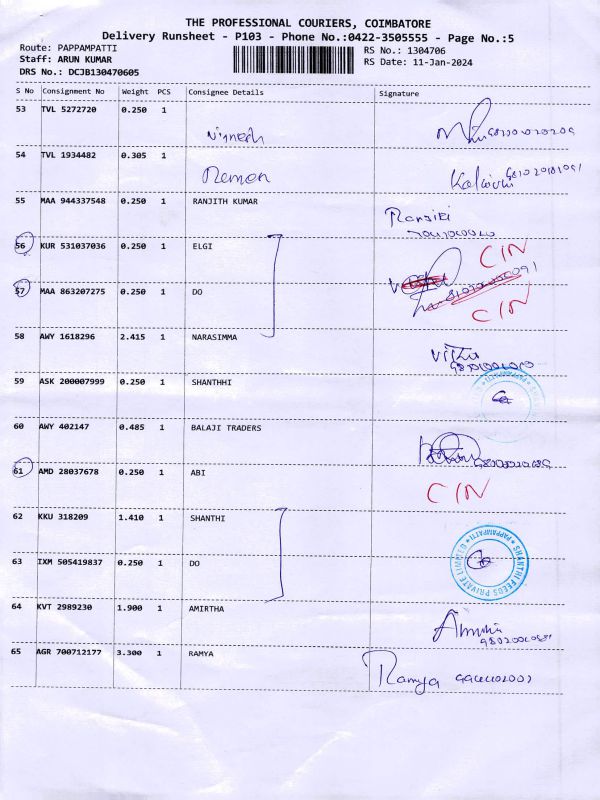 THE PROFESSIONAL COURIERS, COIMBATORE
Delivery Runsheet - P103 - Phone No.:0422-3505555 - Page No.:5
Route: PAPPAMPATTI
Staff: ARUN KUMAR
DRS No.: DCJB130470605
RS No.: 1304706
RS Date: 11-Jan-2024
S No Consignment No Weight PCS Consignee Details Signature
53 TVL 5272720 0.250 1
54 TVL 1934482 0.305 1
55 MAA 944337548 0.250 1 RANJITH KUMAR
56 KUR 531037036 0.250 1 ELGI CIN
57 MAA 863207275 0.250 1 DO CIN
58 AWY 1618296 2.415 1 NARASIMMA
59 ASK 200007999 0.250 1 SHANTHHI
60 AWY 402147 0.485 1 BALAJI TRADERS
61 AMD 28037678 0.250 1 ABI CIN
62 KKU 318209 1.410 1 SHANTHI
63 IXM 505419837 0.250 1 DO
SHANTHI FEEDS PRIVATE LIMITED PAPPAMPATTI
64 KVT 2989230 1.900 1 AMIRTHA
65 AGR 700712177 3.300 1 RAMYA Ramya